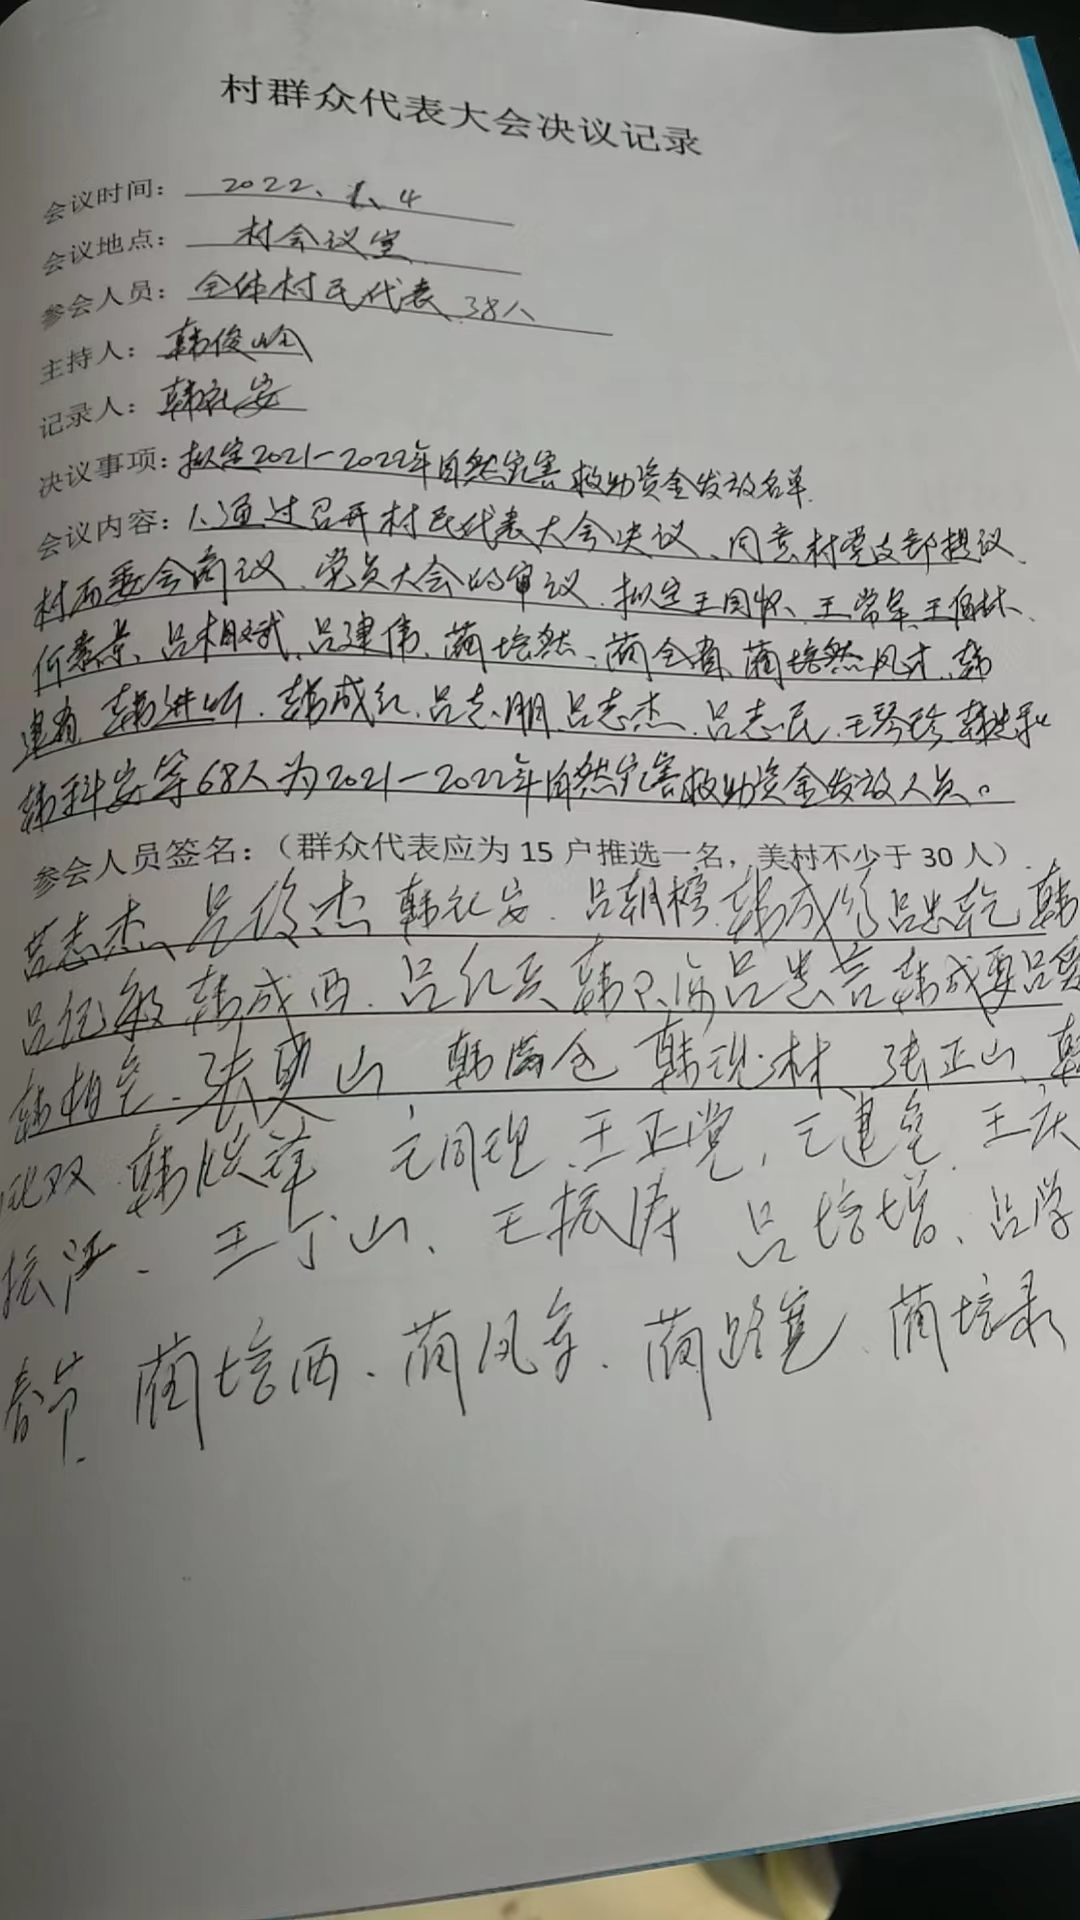 村群众代表大会决议记录
会议时间：2022、1、4
会议地点：村会议室
参会人员：全体村民代表38人
主持人：韩俊岭
记录人：韩礼安
决议事项：拟定2021—2022年自然灾害救助资金发放名单
会议内容：1、通过召开村民代表大会决议、同意村党支部提议、
村两委会商议、党员大会的审议、拟定王同怀、王常年、王伯林、
吕相武、吕建伟、蔺培然、蔺全省、蔺培然、风才、韩
建有、韩进昕、韩成红、吕志朋、吕志杰、吕志民、王琴珍、
韩科安等68人为2021—2022年自然灾害救助资金发放人员。
参会人员签名：（群众代表应为 15 户推选一名，美村不少于 30 人）
吕志杰、吕俊杰 韩礼安、吕朝榜、吕忠乾 韩
吕纪敏 韩成西、吕红兵 吕忠言 韩成要 吕
韩相宪、张更山 韩满仓 韩现材、张正山、韩
双 韩俊锋 王同理、王正党、王建宪、王庆
振江、王个山、王振涛 吕培增、吕学
春节、蔺培西、蔺风军、蔺路宽、蔺培录